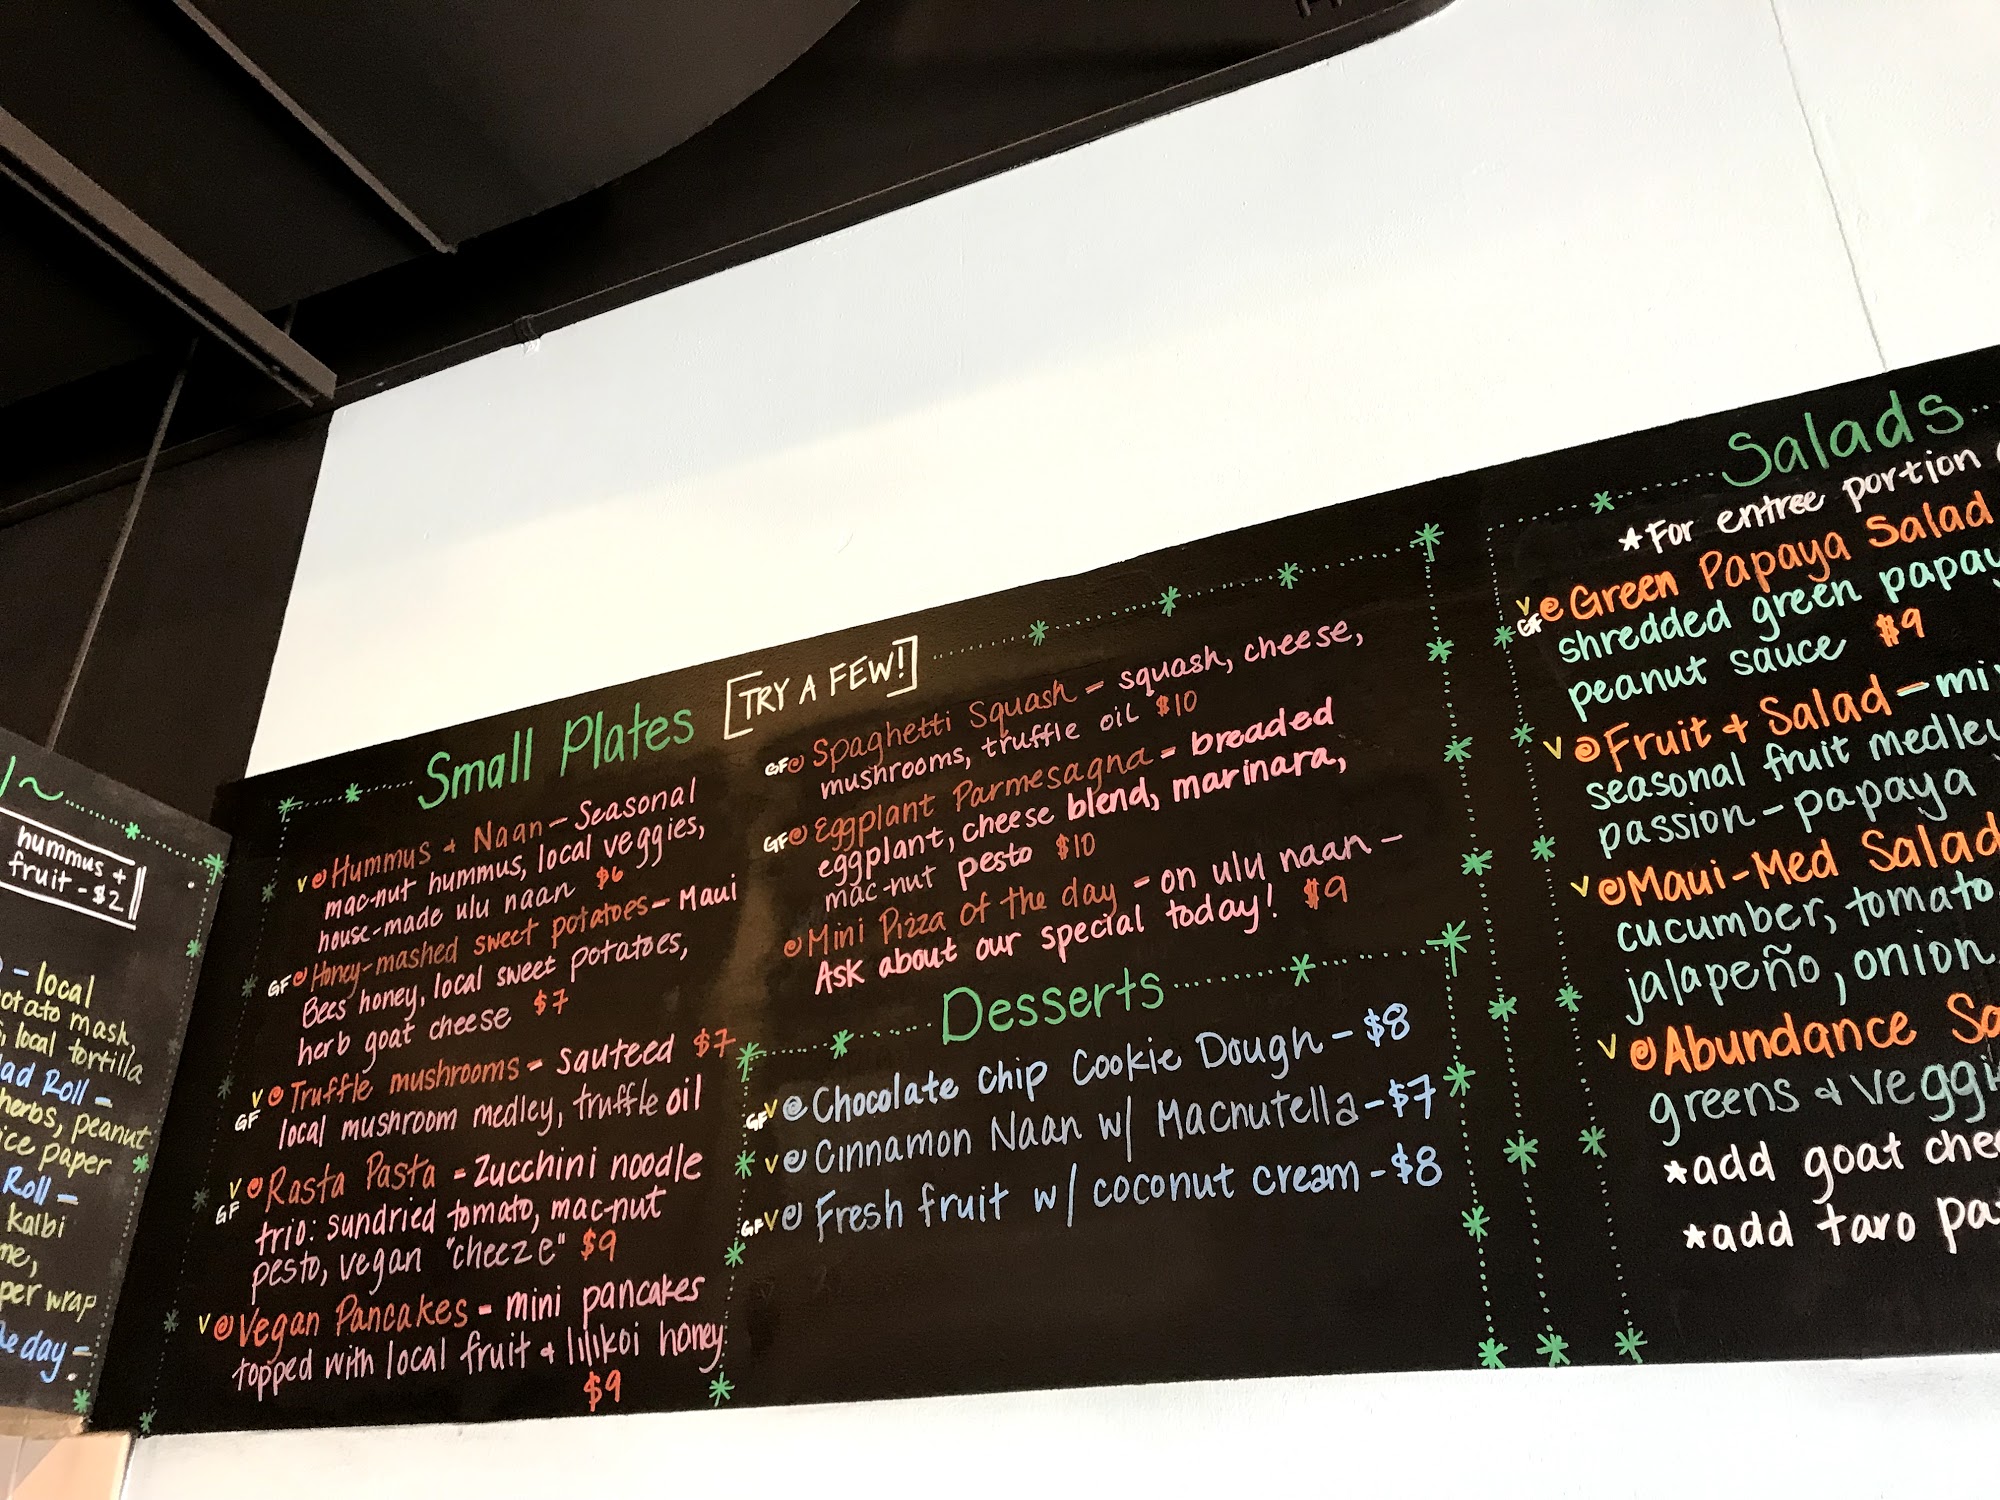 hummus +
fruit - $2
- local
mash,
local tortilla
Roll -
herbs, peanut
paper
Roll -
kalbi
wrap
day -
Small Plates [TRY A FEW!]
V Hummus + Naan - Seasonal
mac-nut hummus, local veggies,
house-made ulu naan $6
GF Honey-mashed sweet potatoes - Maui
Bees honey, local sweet potatoes,
herb goat cheese $7
V GF Truffle mushrooms - sauteed $7
local mushroom medley, truffle oil
V GF Rasta Pasta - Zucchini noodle
trio: sundried tomato, mac-nut
pesto, vegan "cheeze" $9
V Vegan Pancakes - mini pancakes
topped with local fruit + lilikoi honey
$9
GF Spaghetti Squash - squash, cheese,
mushrooms, truffle oil $10
GF Eggplant Parmesagna - breaded
eggplant, cheese blend, marinara,
mac-nut pesto $10
Mini Pizza of the day - on ulu naan -
Ask about our special today! $9
Desserts
GF V Chocolate Chip Cookie Dough - $8
V Cinnamon Naan w/ Macnutella - $7
GF V Fresh fruit w/ coconut cream - $8
Salads
*For entree portion
V GF Green Papaya Salad
shredded green papay
peanut sauce $9
V Fruit + Salad - mi
seasonal fruit medley
passion-papaya
V Maui-Med Salad
cucumber, tomato
jalapeño, onion,
V Abundance Sa
greens + veggi
*add goat chee
*add taro pa